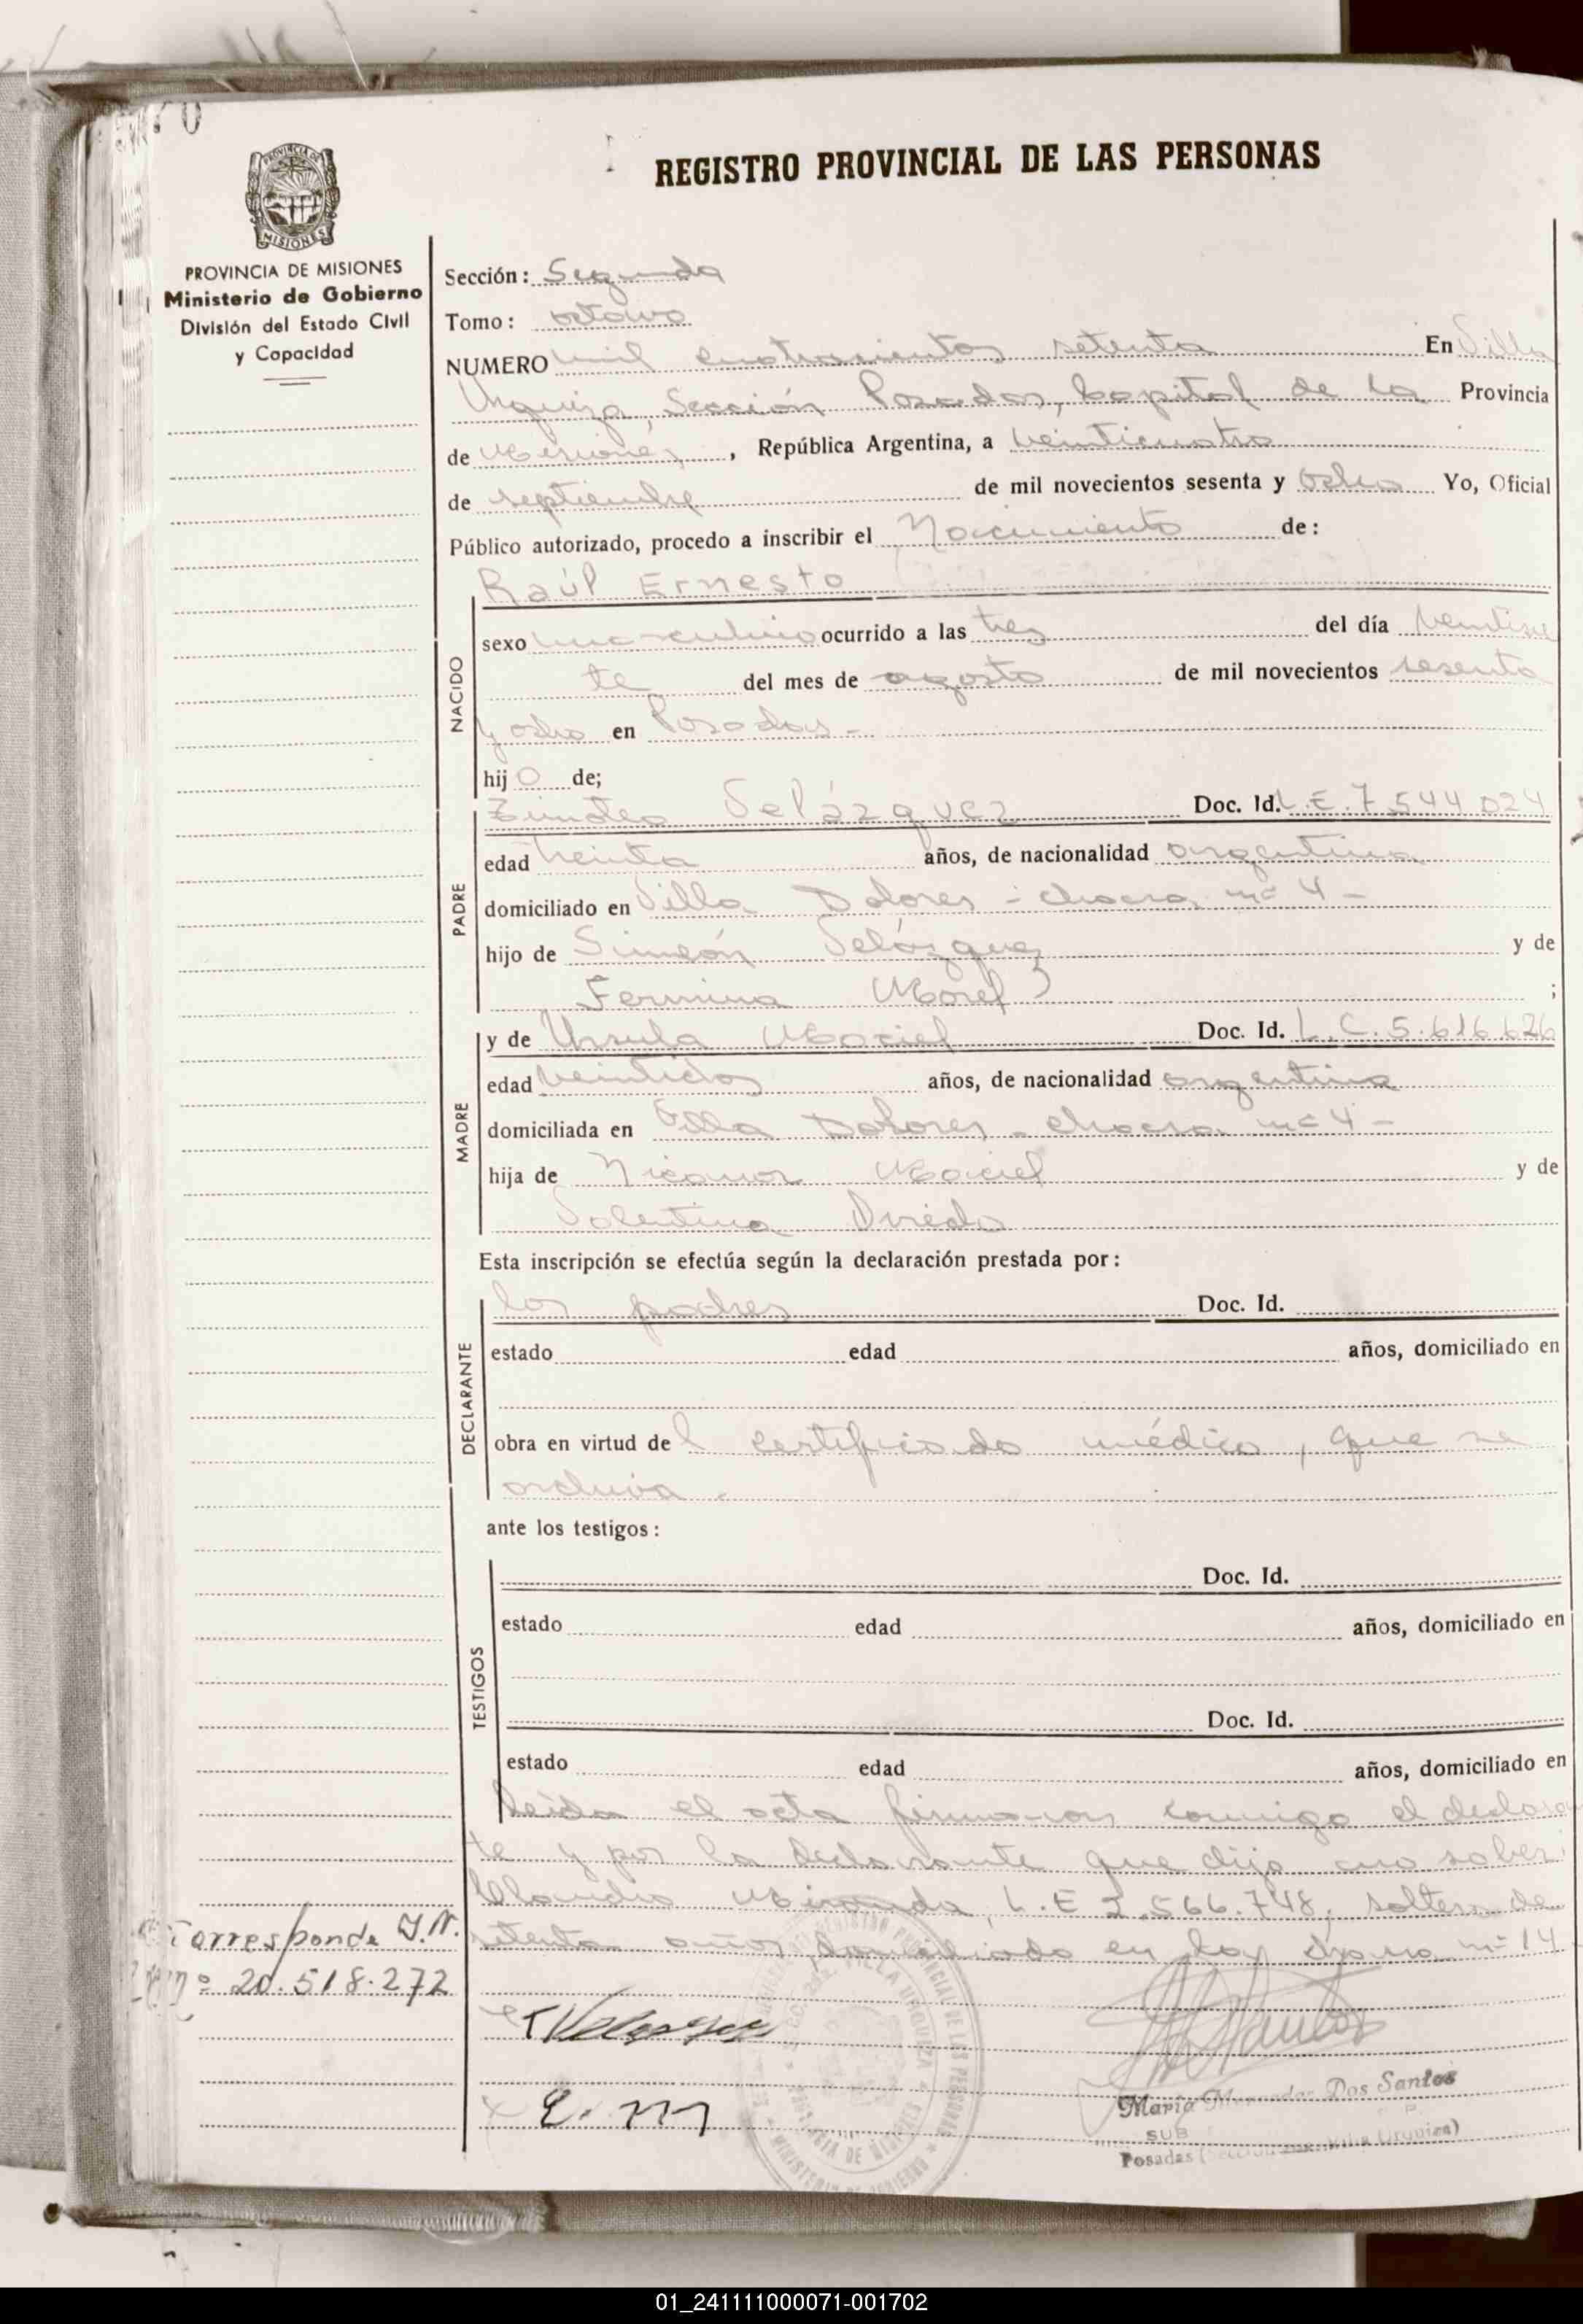 REGISTRO PROVINCIAL DE LAS PERSONAS
PROVINCIA DE MISIONES
Ministerio de Gobierno
División del Estado Civil
y Capacidad
Sección: Segunda
Tomo: octavo
NUMERO mil cuatrocientos setenta En Villa
Urquiza, Sección Posadas, Capital de la Provincia
de Misiones, República Argentina, a veinticuatro
de septiembre de mil novecientos sesenta y ocho Yo, Oficial
Público autorizado, procedo a inscribir el Nacimiento de:
NACIDO
Raúl Ernesto
sexo masculino ocurrido a las tres del día veintisie
te del mes de agosto de mil novecientos sesenta
y ocho en Posadas -
hijo de;
PADRE
Timoteo Velázquez Doc. Id. L.E. 7.544.024
edad treinta años, de nacionalidad argentina
domiciliado en Villa Dolores - chacra nº 4 -
hijo de Simeón Velázquez y de
Fermina Morel ;
MADRE
y de Ursula Maciel Doc. Id. L.C. 5.616.626
edad veintidos años, de nacionalidad argentina
domiciliada en Villa Dolores - chacra nº 4 -
hija de Nicanor Maciel y de
Valentina Oviedo
Esta inscripción se efectúa según la declaración prestada por:
DECLARANTE
los padres Doc. Id.
estado edad años, domiciliado en
obra en virtud del certificado médico, que se
archiva.
ante los testigos:
TESTIGOS
Doc. Id.
estado edad años, domiciliado en
Doc. Id.
estado edad años, domiciliado en
Leida el acta firmaron conmigo el declaran
te y por la declarante que dijo no saber
Claudio Miranda, L.E 2.566.748, soltero de
setenta años, domiciliado en la chacra nº 14
Corresponde D.N.
nº 20.518.272
T Velazquez
C. M
María Mercedes Dos Santos
SUB
Posadas (Sección Villa Urquiza)
01_241111000071-001702